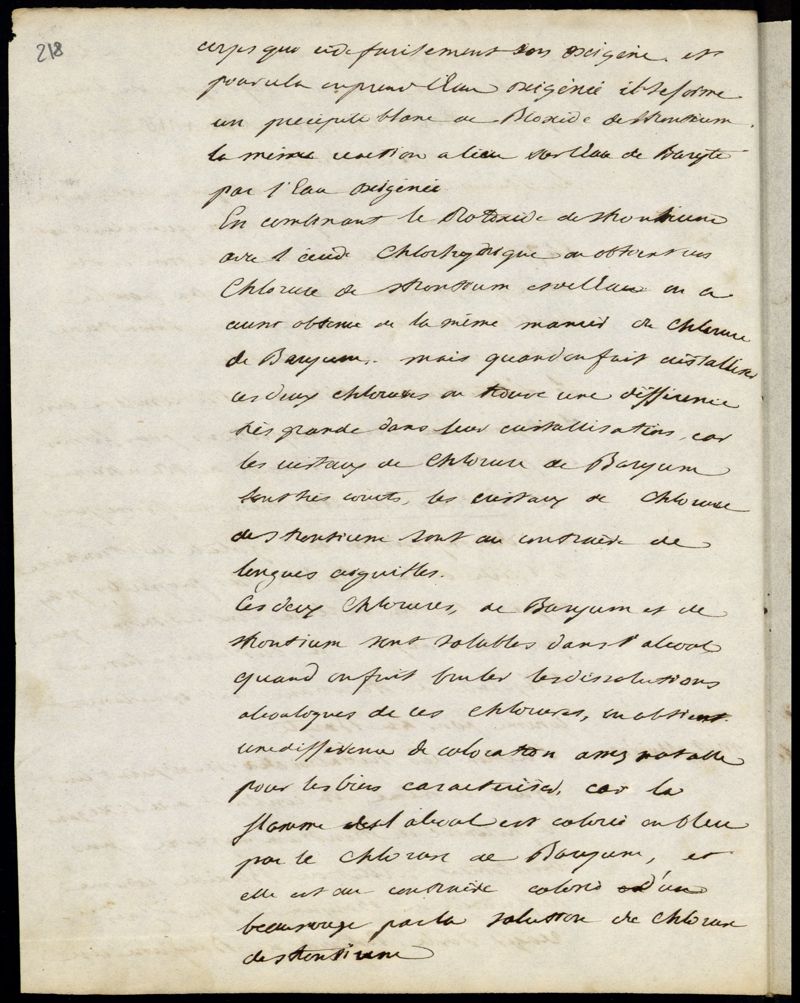 218
corps que cède facilement son oxigène. et
pour cela on prend l'Eau oxigénée il se forme
un précipité blanc de Bioxide de strontium.
la même réaction a lieu sur l'Eau de Baryte
par l'Eau oxigénée
En combinant le Protoxide de strontium
avec l'acide Chlorhydrique on obtient un
Chlorure de strontium et de l'Eau on a
aussi obtenu de la même manière du Chlorure
de Baryum. mais quand on fait cristalliser
ces deux chlorures on trouve une différence
très grande dans leur cristallisation, car
les cristaux de Chlorure de Baryum
sont très courts, les cristaux de Chlorure
de strontium sont au contraire de
longues aiguilles.
Ces deux Chlorures, de Baryum et de
strontium sont solubles dans l'alcool
quand on fait bruler les dissolutions
alcooliques de ces Chlorures, on obtient
une différence de coloration assez notable
pour les bien caractériser, car la
flamme de l'alcool est colorée en bleu
par le Chlorure de Baryum, et
elle est au contraire colorée d'un
beau rouge par la solution de Chlorure
de strontium